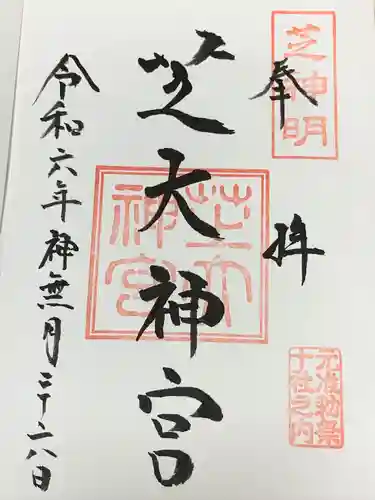 芝神明
奉拝
元准勅祭
十社之内
芝大神宮
芝大神宮
令和六年神無月二十八日